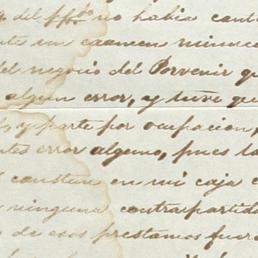 del pp^do no habia cant
en examen minuc
del negocio del Porvenir q
algun error, y tuve que
y parte por ocupacion,
error alguno, pues la
constare en mi caja
ninguna contrapartid
de esos prestamos fuer